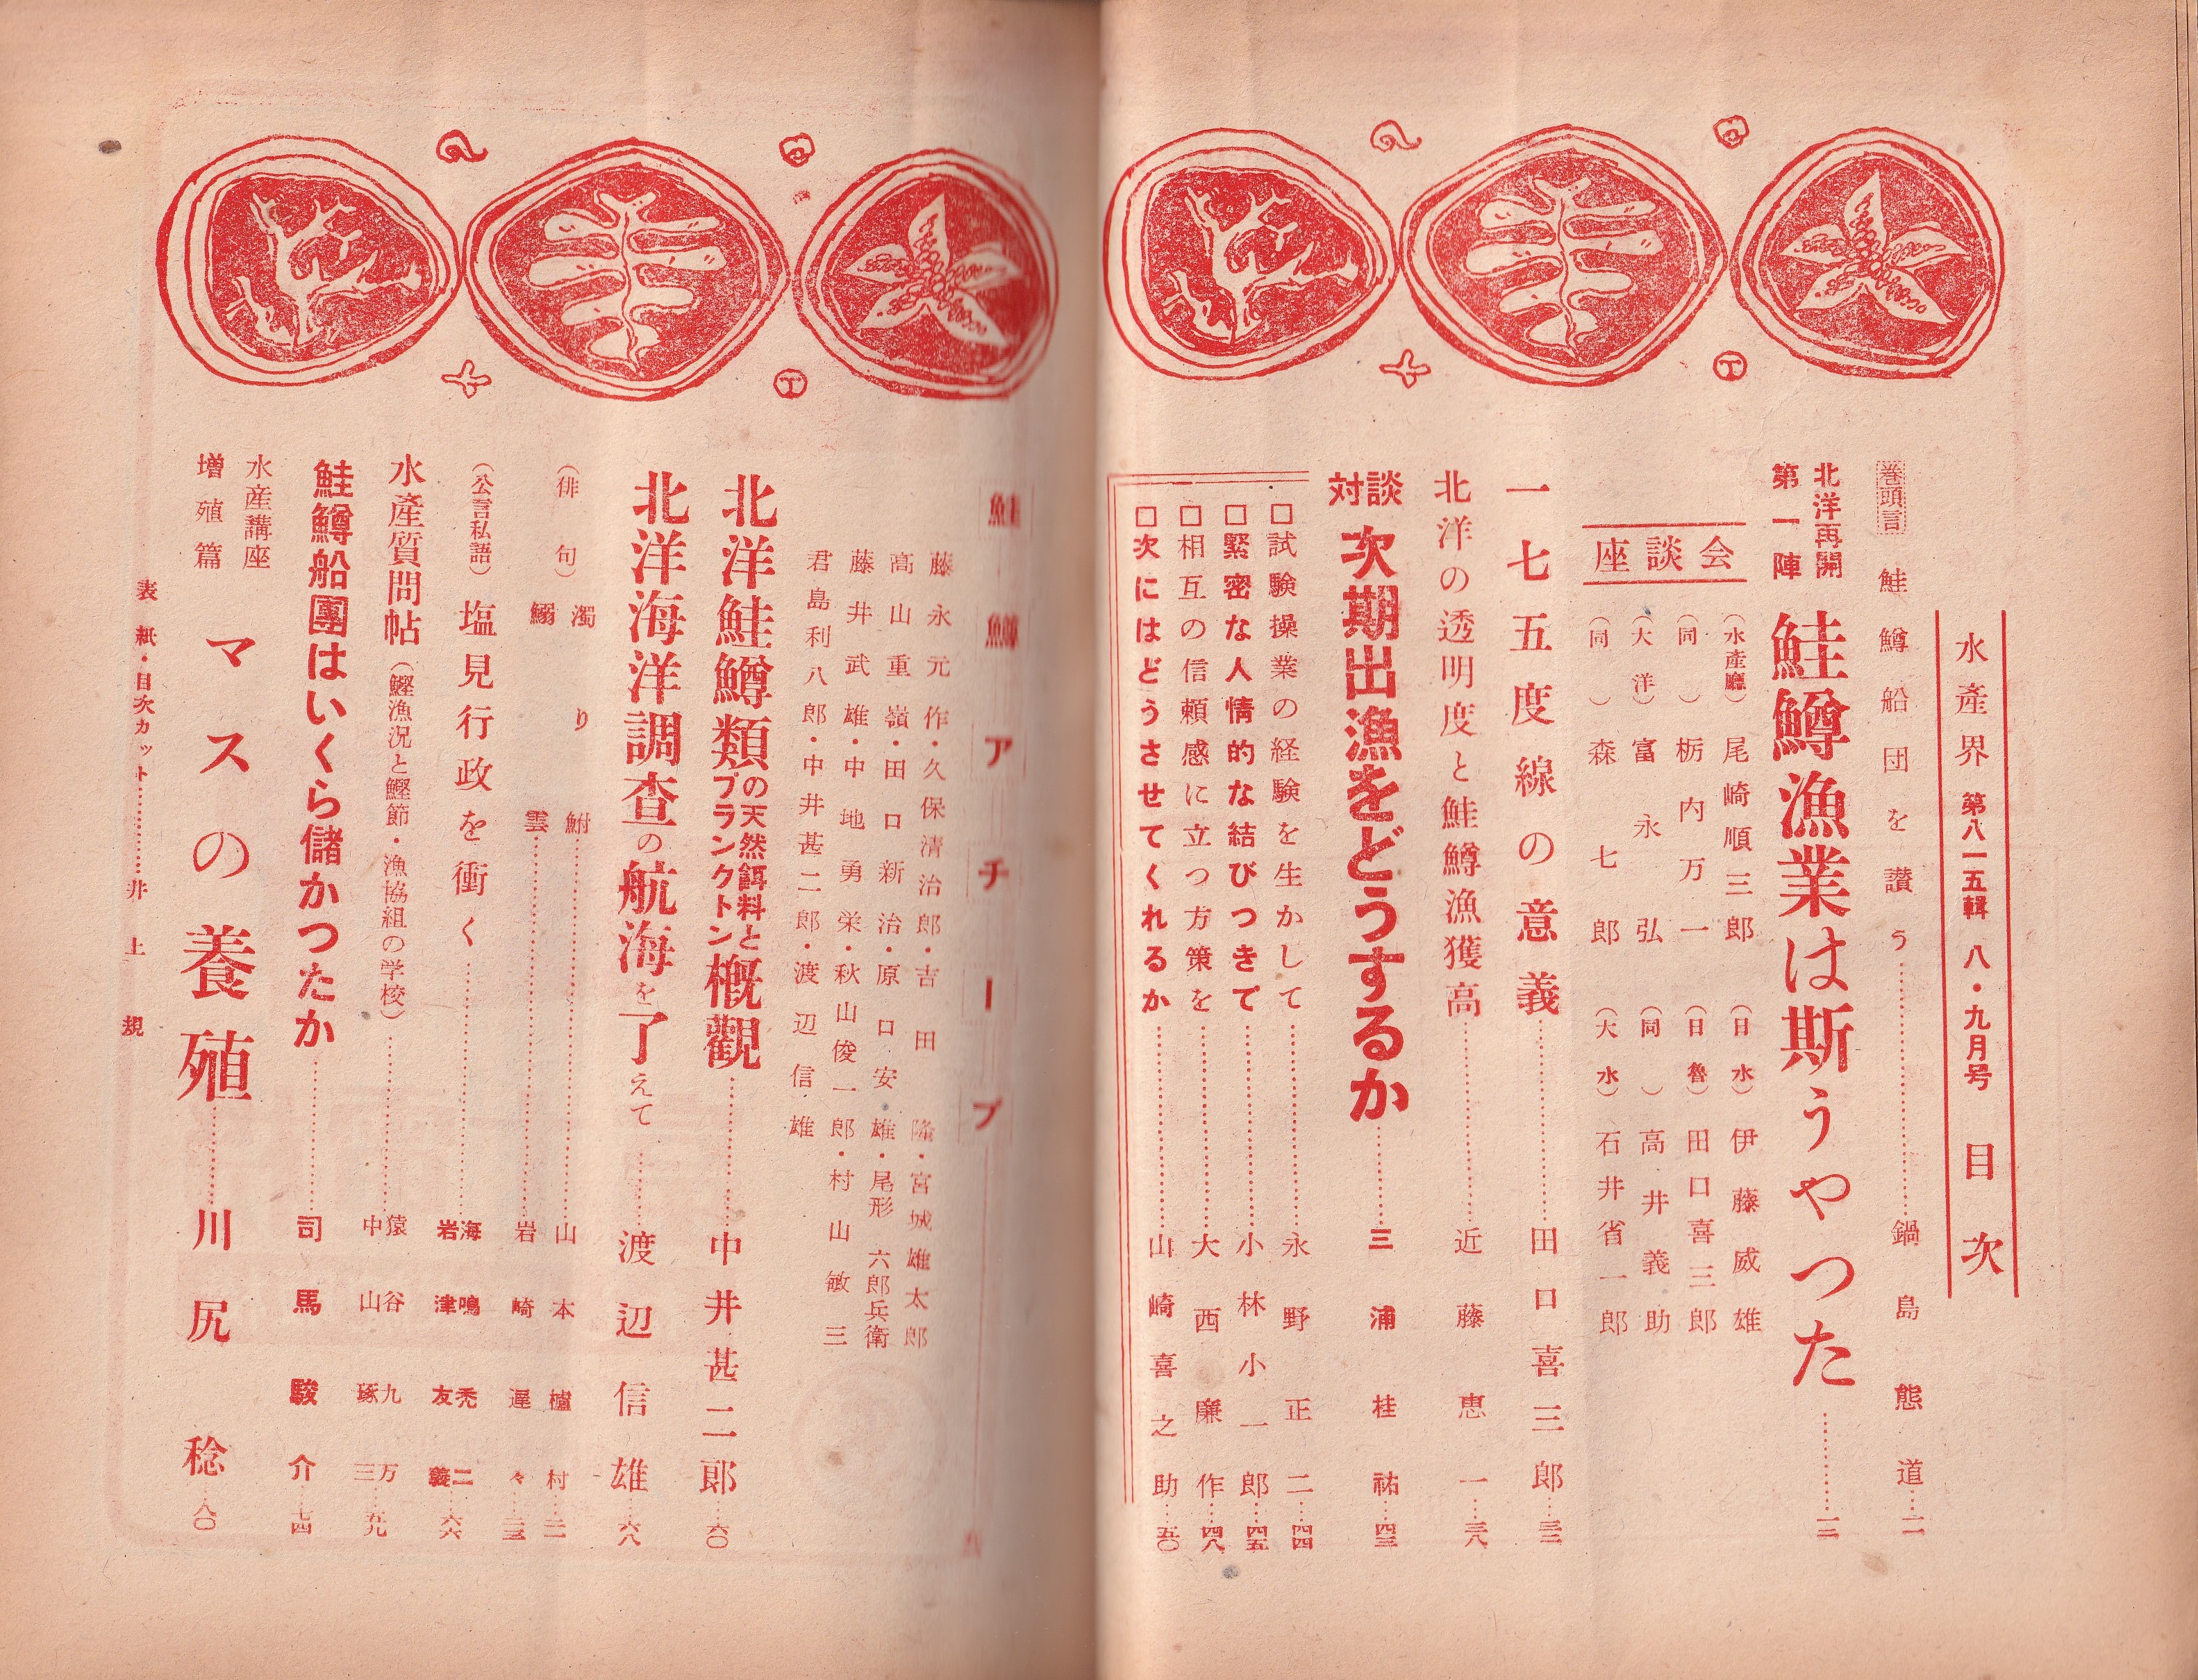 水產界 第八一五輯 八・九月号 目次
巻頭言 鮭鱒船団を讃う……鍋島態道…二
北洋再開
第一陣
鮭鱒漁業は斯うやつた……一二
座談会
(水產廳) 尾崎順三郎 (日水) 伊藤威雄
(同) 栃内万一 (日魯) 田口喜三郎
(大洋) 富永弘 (同) 高井義助
(同) 森七郎 (大水) 石井省一郎
一七五度線の意義……田口喜三郎…三三
北洋の透明度と鮭鱒漁獲高……近藤恵一…三八
対談 次期出漁をどうするか……三浦桂祐…四三
□試験操業の経験を生かして……永野正二…四四
□緊密な人情的な結びつきで……小林小一郎…四五
□相互の信頼感に立つ方策を……大西廉作…四八
□次にはどうさせてくれるか……山崎喜之助…五〇
鮭鱒アチーブ
藤永元作・久保清治郎・吉田隆・宮城雄太郎
高山重嶺・田口新治・原口安雄・尾形六郎兵衛
藤井武雄・中地勇栄・秋山俊一郎・村山敏三
君島利八郎・中井甚二郎・渡辺信雄
北洋鮭鱒類の天然餌料とプランクトン概觀……中井甚二郎…六〇
北洋海洋調査の航海を了えて……渡辺信雄…六八
(俳句) 濁り鮒……山本櫨村…二
鰯雲……岩崎遅々…三三
(公言私語) 塩見行政を衝く……海鳴禿二
岩津友義…六六
水產質問帖 (鰹漁況と鰹節・漁協組の学校)……猿谷九万
中山琢三…五九
鮭鱒船團はいくら儲かつたか……司馬駿介…七四
水産講座
増殖篇
マスの養殖……川尻稔…八〇
表紙・目次カット……井上規